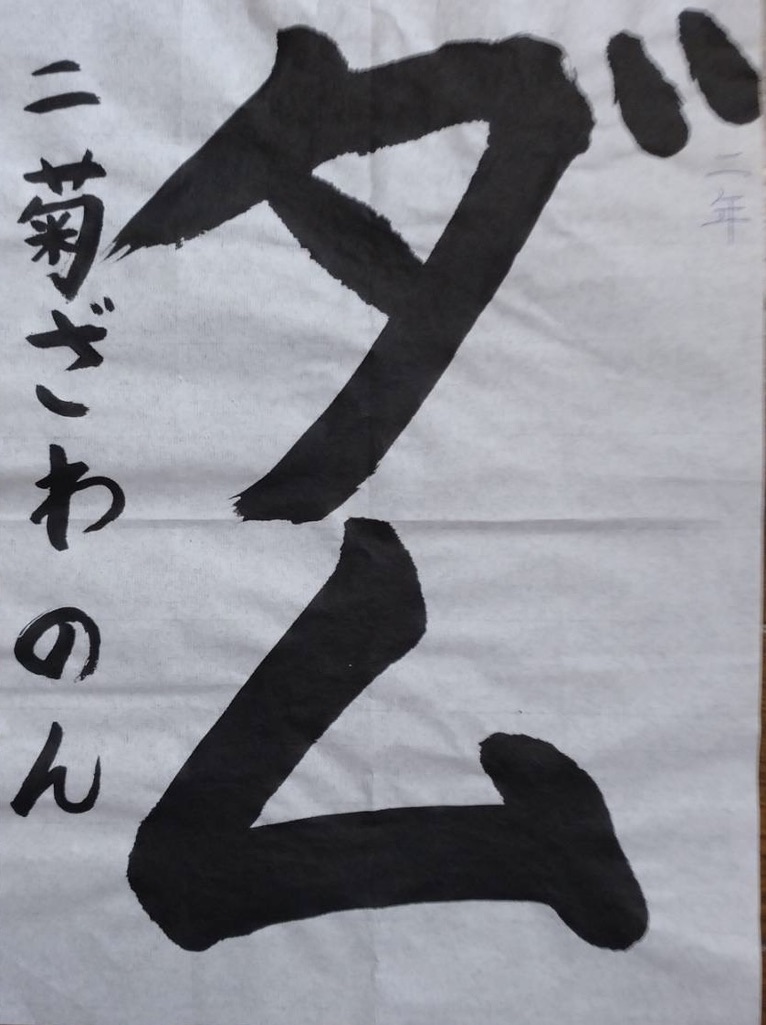 二年
ダム
二菊ざわのん